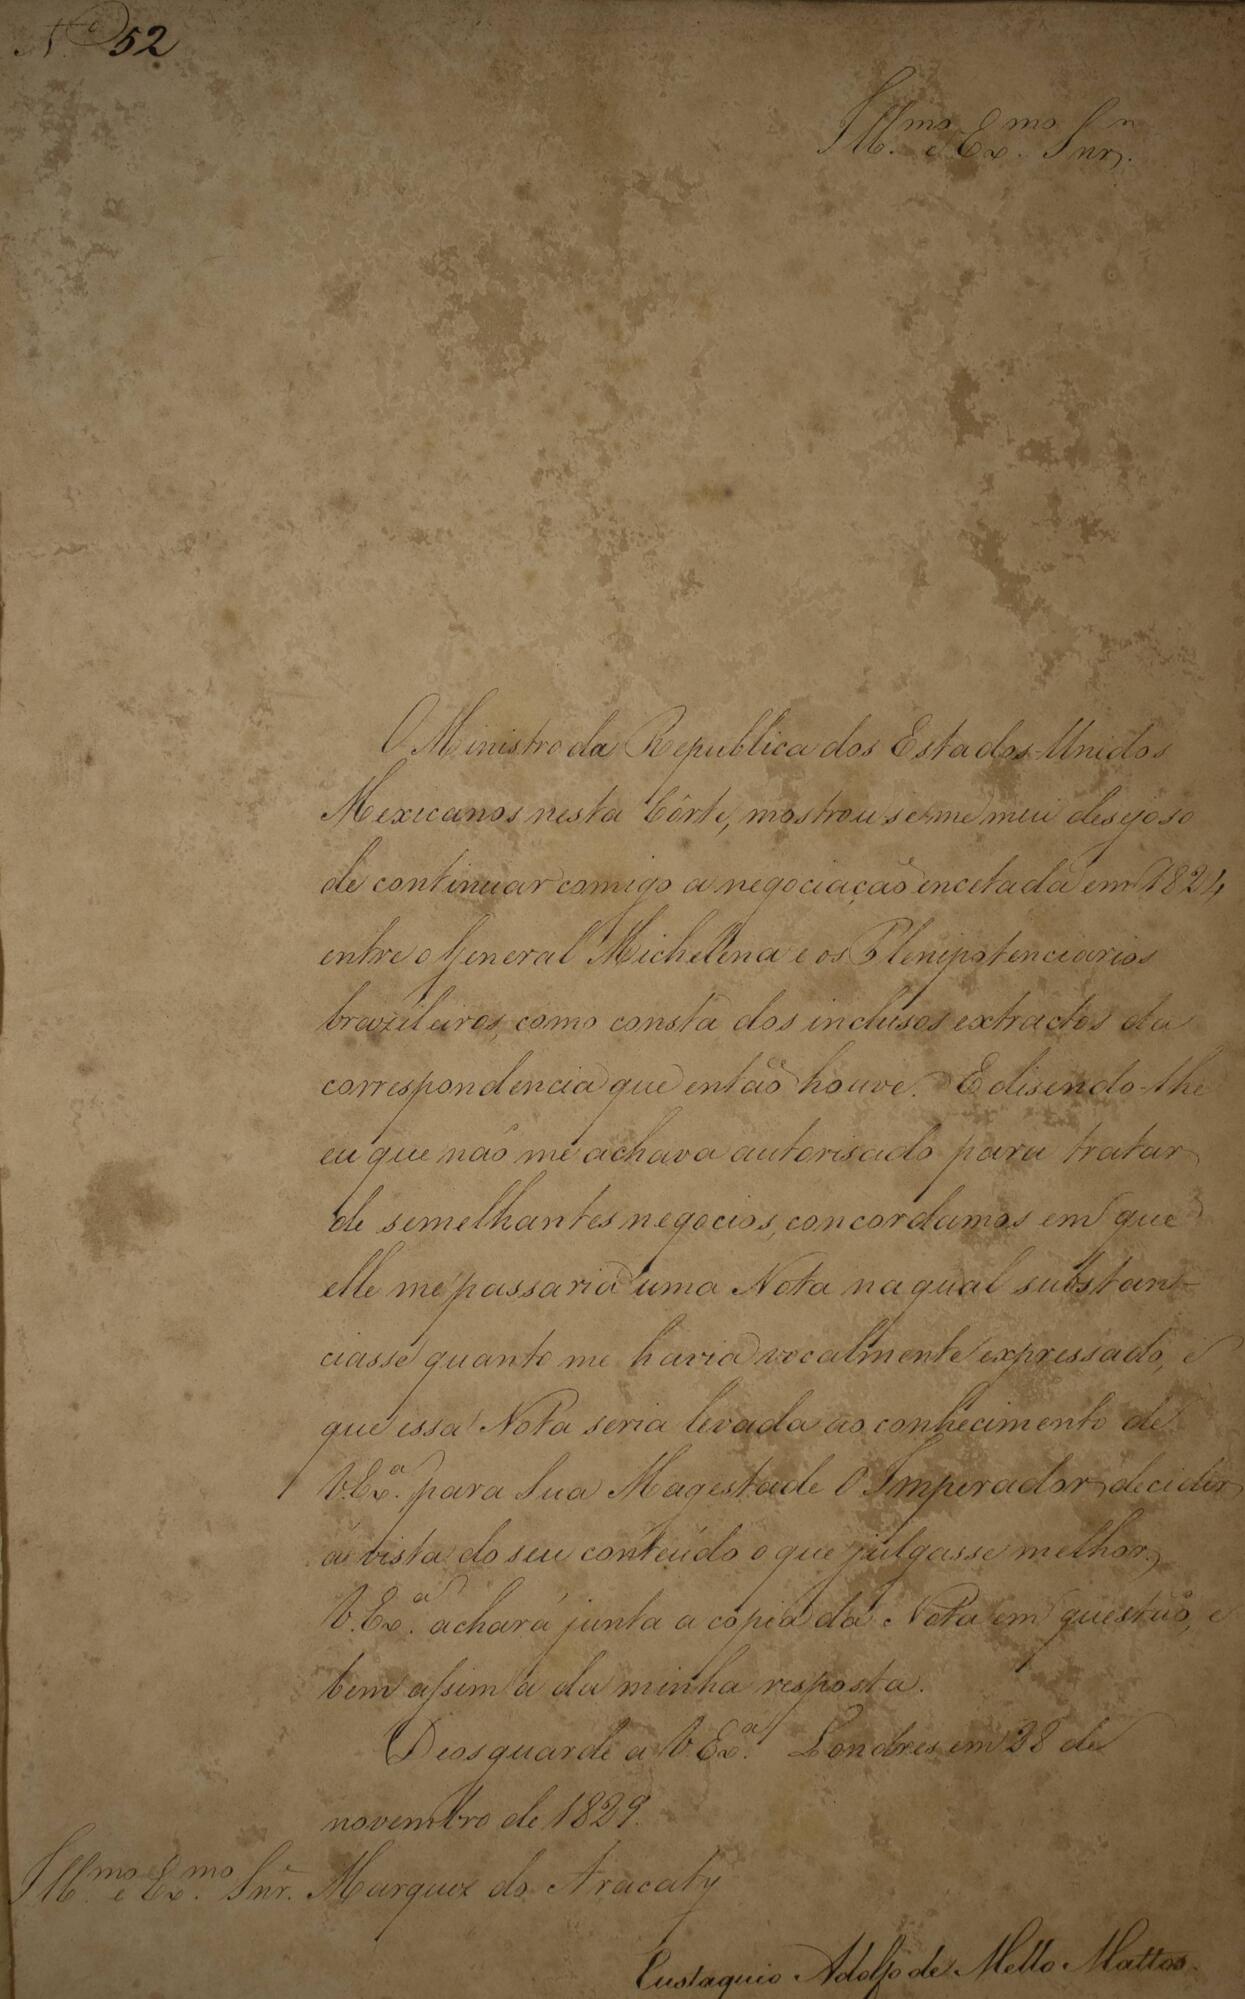 N.º 52
Ill.mo e Ex.mo Snr.
O Ministro da Republica dos Estados-Unidos
Mexicanos nesta Côrte, mostrou se me mui desejoso
de continuar comigo a negociação encetada em 1824
entre o General Michelena e os Plenipotenciarios
brazileiros, como consta dos inclusos extractos da
correspondencia que então houve. E disendo-lhe
eu que não me achava autorisado para tratar
de semelhantes negocios, concordamos em que
elle me passaria uma Nota na qual substan-
ciasse quanto me havia vocalmente expressado, e
que essa Nota seria levada ao conhecimento de
V. Ex.a para Sua Magestade O Imperador decidir
á vista do seu conteúdo o que julgasse melhor.
V. Ex.a achará junta a copia da Nota em questão, e
bem assim a da minha resposta.
Deos guarde a V. Ex.a Londres em 28 de
novembro de 1829.
Ill.mo e Ex.mo Snr. Marquez do Aracaty
Eustaquio Adolfo de Mello Mattos.